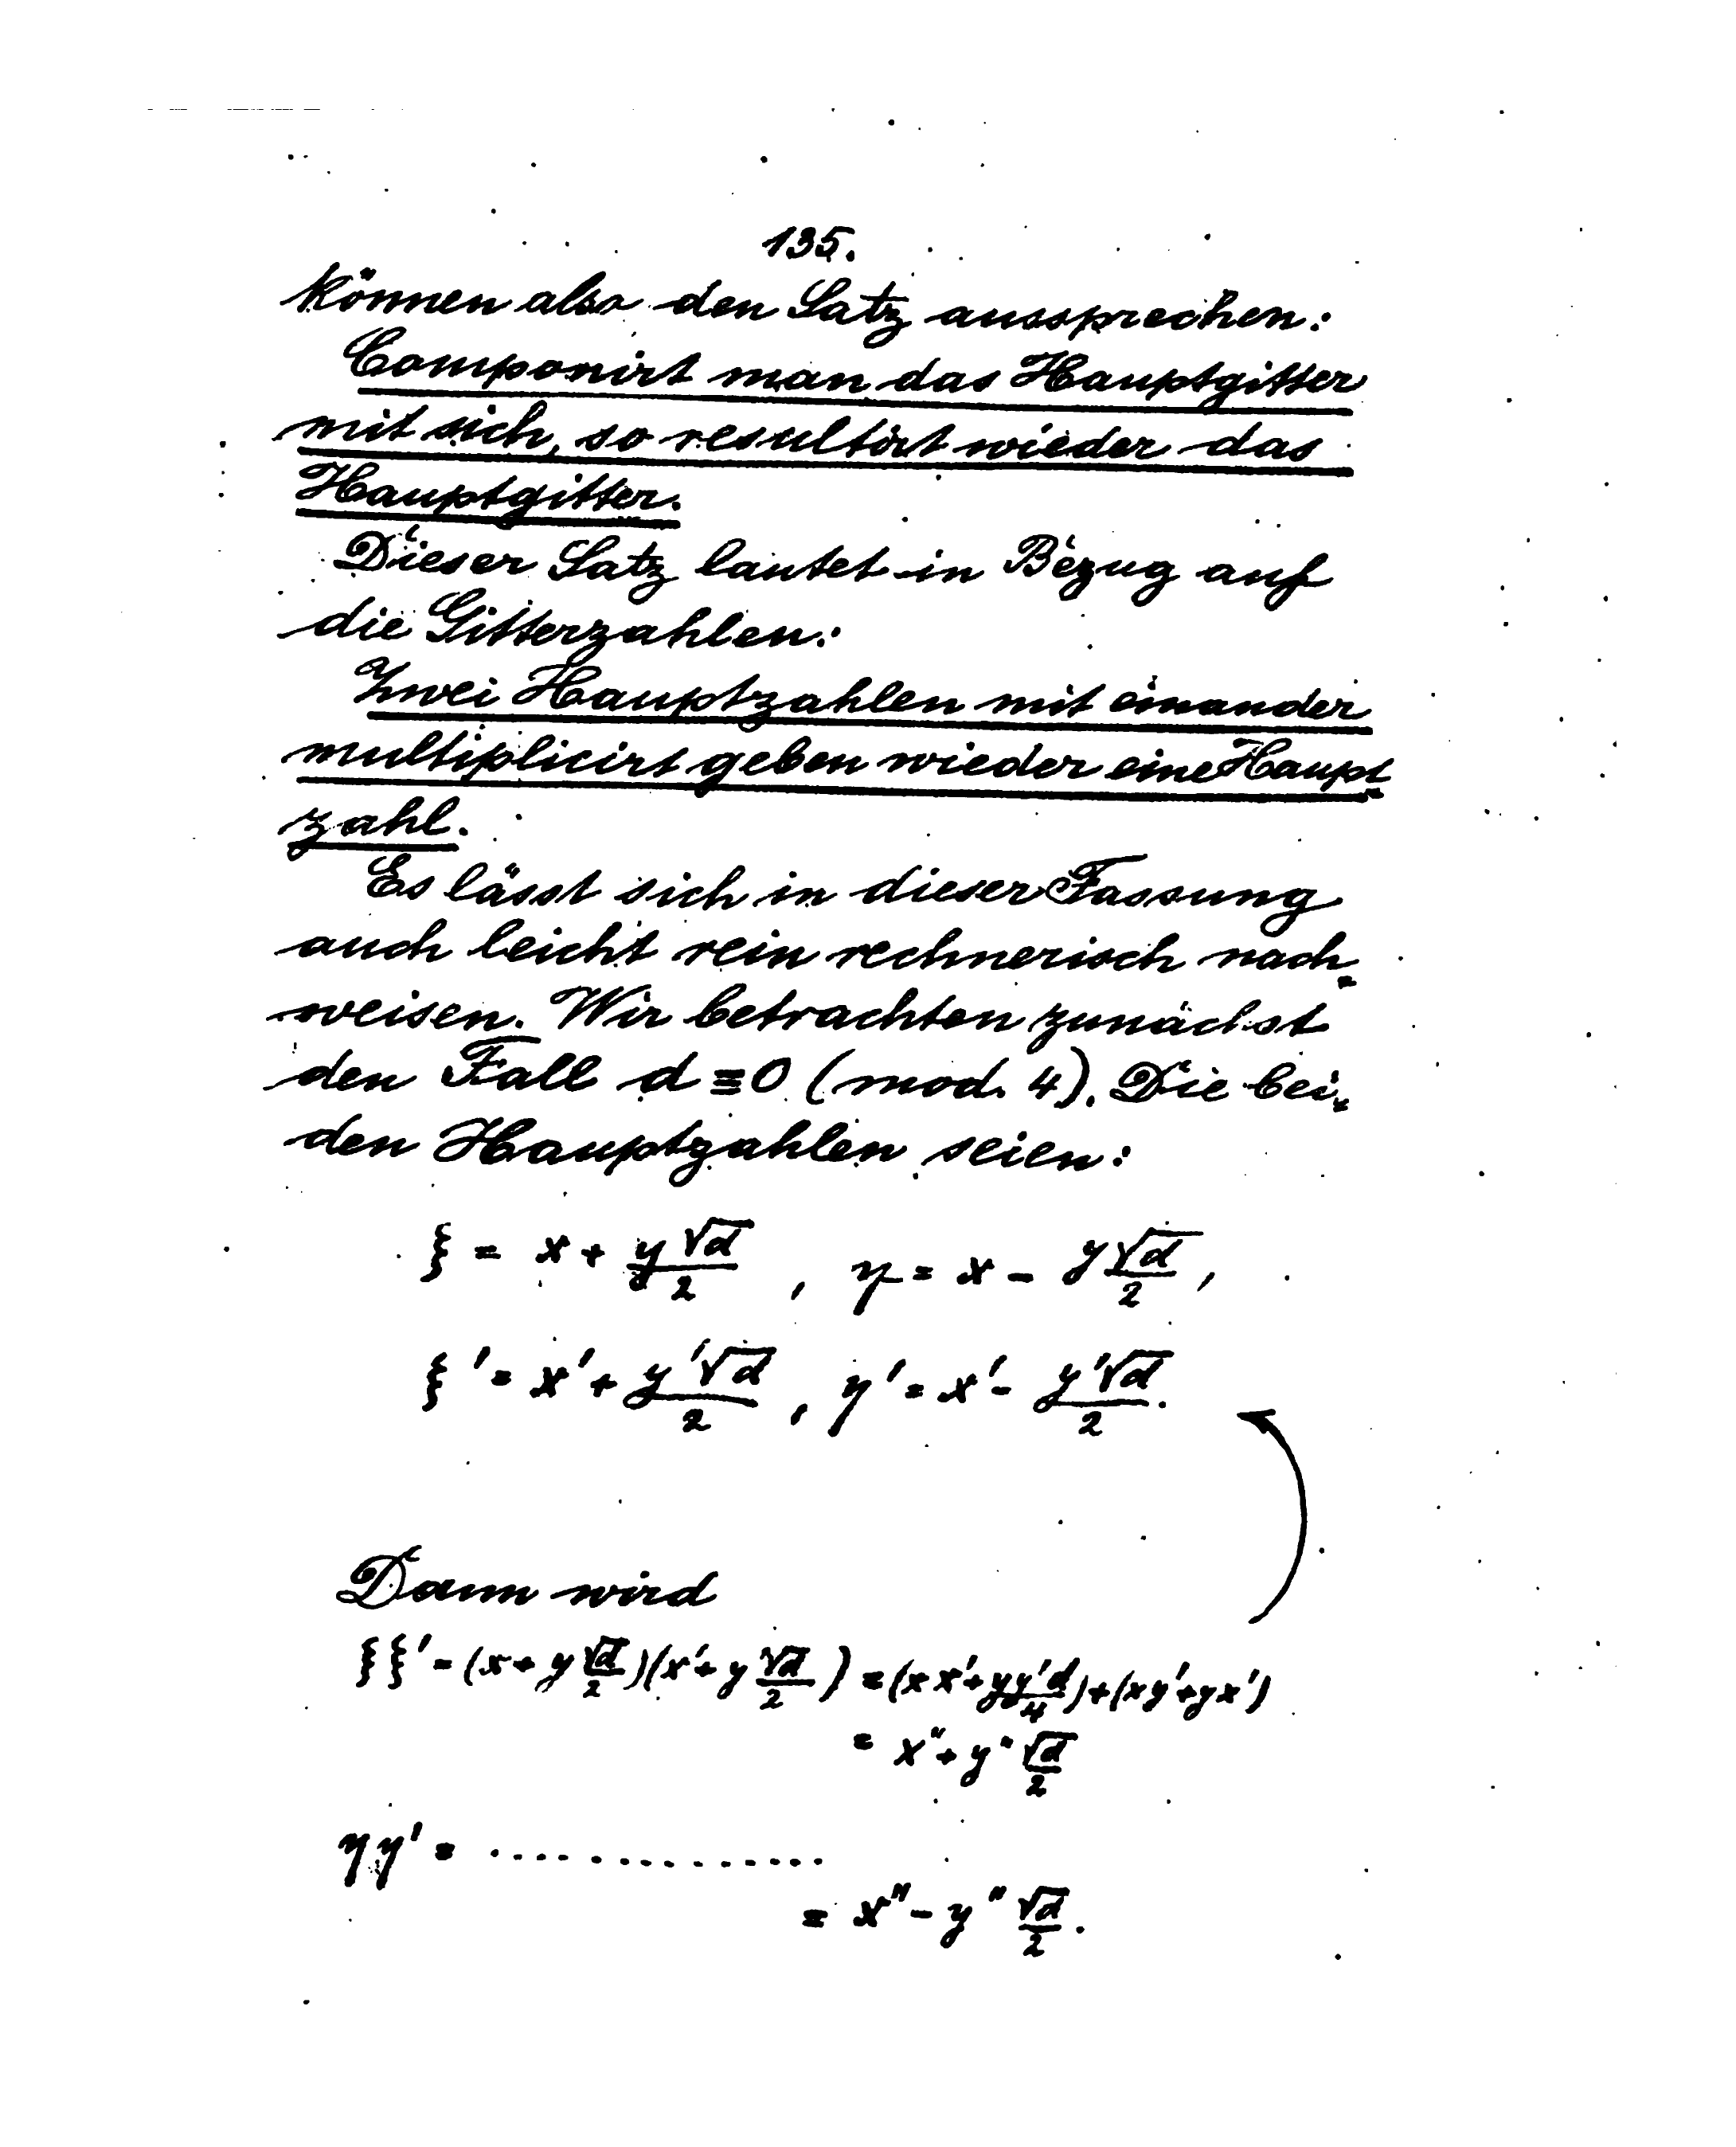 135.
können also den Satz aussprechen:
Componirt man das Hauptgitter
mit sich, so resultirt wieder das
Hauptgitter.
Dieser Satz lautet in Bezug auf
die Gitterzahlen:
Zwei Hauptzahlen mit einander
multiplicirt geben wieder eine Haupt-
zahl.
Es lässt sich in dieser Fassung
auch leicht rein rechnerisch nach-
weisen. Wir betrachten zunächst
den Fall d ≡ 0 (mod. 4). Die bei-
den Hauptzahlen seien:
ξ = x + y√d/2, η = x - y√d/2,
ξ' = x' + y'√d/2, η' = x' - y'√d/2.
Dann wird
ξξ' = (x + y √d/2)(x' + y √d/2) = (xx' + yy'd/4) + (xy' + yx')
= x" + y" √d/2
ηη' = ...............
= x" - y" √d/2.